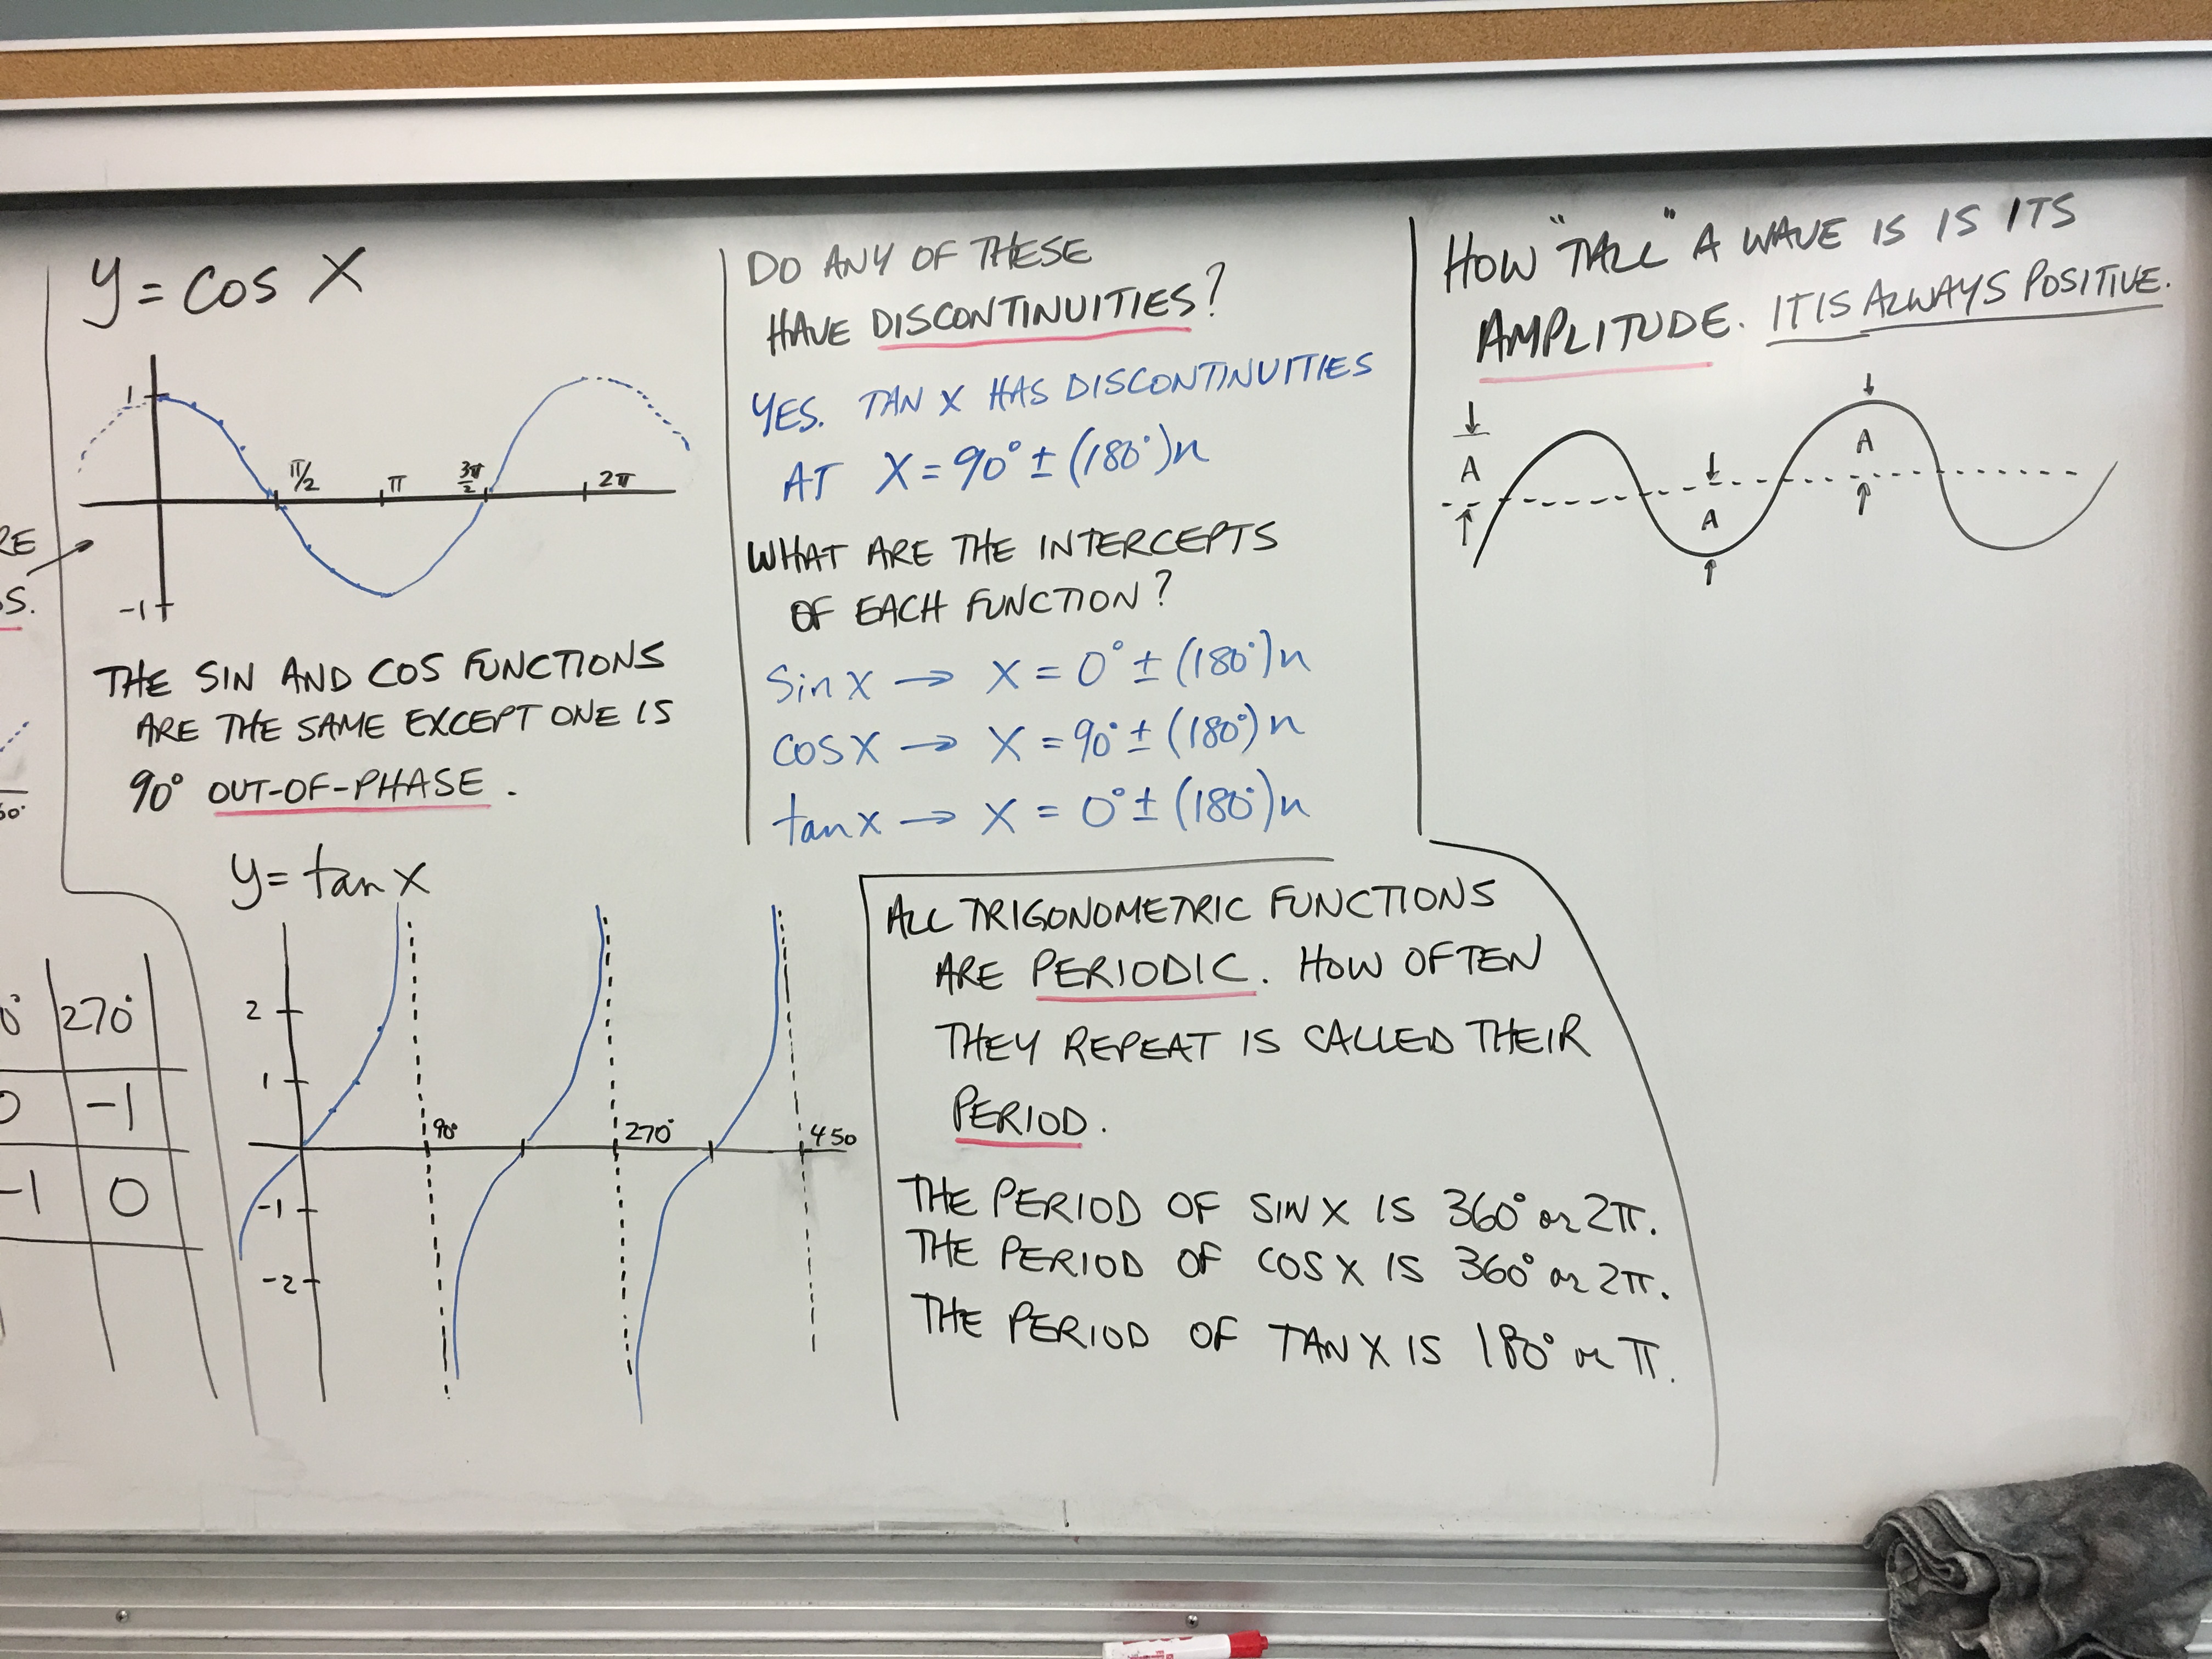 RE
S.
60°
270°
0
-1
-1
0
y = cos x
1
π/2
π
3π/2
2π
-1
THE SIN AND COS FUNCTIONS
ARE THE SAME EXCEPT ONE IS
90° OUT-OF-PHASE.
y = tan x
2
1
90°
270°
450
-1
-2
DO ANY OF THESE
HAVE DISCONTINUITIES?
YES. TAN X HAS DISCONTINUITIES
AT X = 90° ± (180°)n
WHAT ARE THE INTERCEPTS
OF EACH FUNCTION?
sin x → X = 0° ± (180°)n
cos x → X = 90° ± (180°)n
tan x → X = 0° ± (180°)n
ALL TRIGONOMETRIC FUNCTIONS
ARE PERIODIC. HOW OFTEN
THEY REPEAT IS CALLED THEIR
PERIOD.
THE PERIOD OF SIN X IS 360° or 2π.
THE PERIOD OF COS X IS 360° or 2π.
THE PERIOD OF TAN X IS 180° or π.
HOW "TALL" A WAVE IS IS ITS
AMPLITUDE. IT IS ALWAYS POSITIVE.
A
A
A